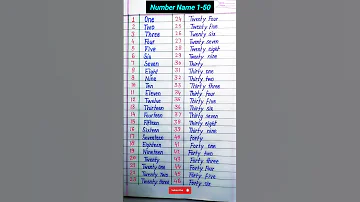 Number Name 1-50
1 One 24 Twenty Four
2 Two 25 Twenty five
3 Three 26 Twenty six
4 Four 27 Twenty seven
5 Five 28 Twenty eight
6 Six 29 Twenty nine
7 Seven 30 Thirty
8 Eight 31 Thirty one
9 Nine 32 Thirty two
10 Ten 33 Thirty three
11 Eleven 34 Thirty four
12 Twelve 35 Thirty five
13 Thirteen 36 Thirty six
14 Fourteen 37 Thirty seven
15 Fifteen 38 Thirty eight
16 Sixteen 39 Thirty nine
17 Seventeen 40 Forty
18 Eighteen 41 Forty one
19 Nineteen 42 Forty two
20 Twenty 43 Forty three
21 Twenty one 44 Forty four
22 Twenty two 45 Forty five
23 Twenty three 46 Forty six